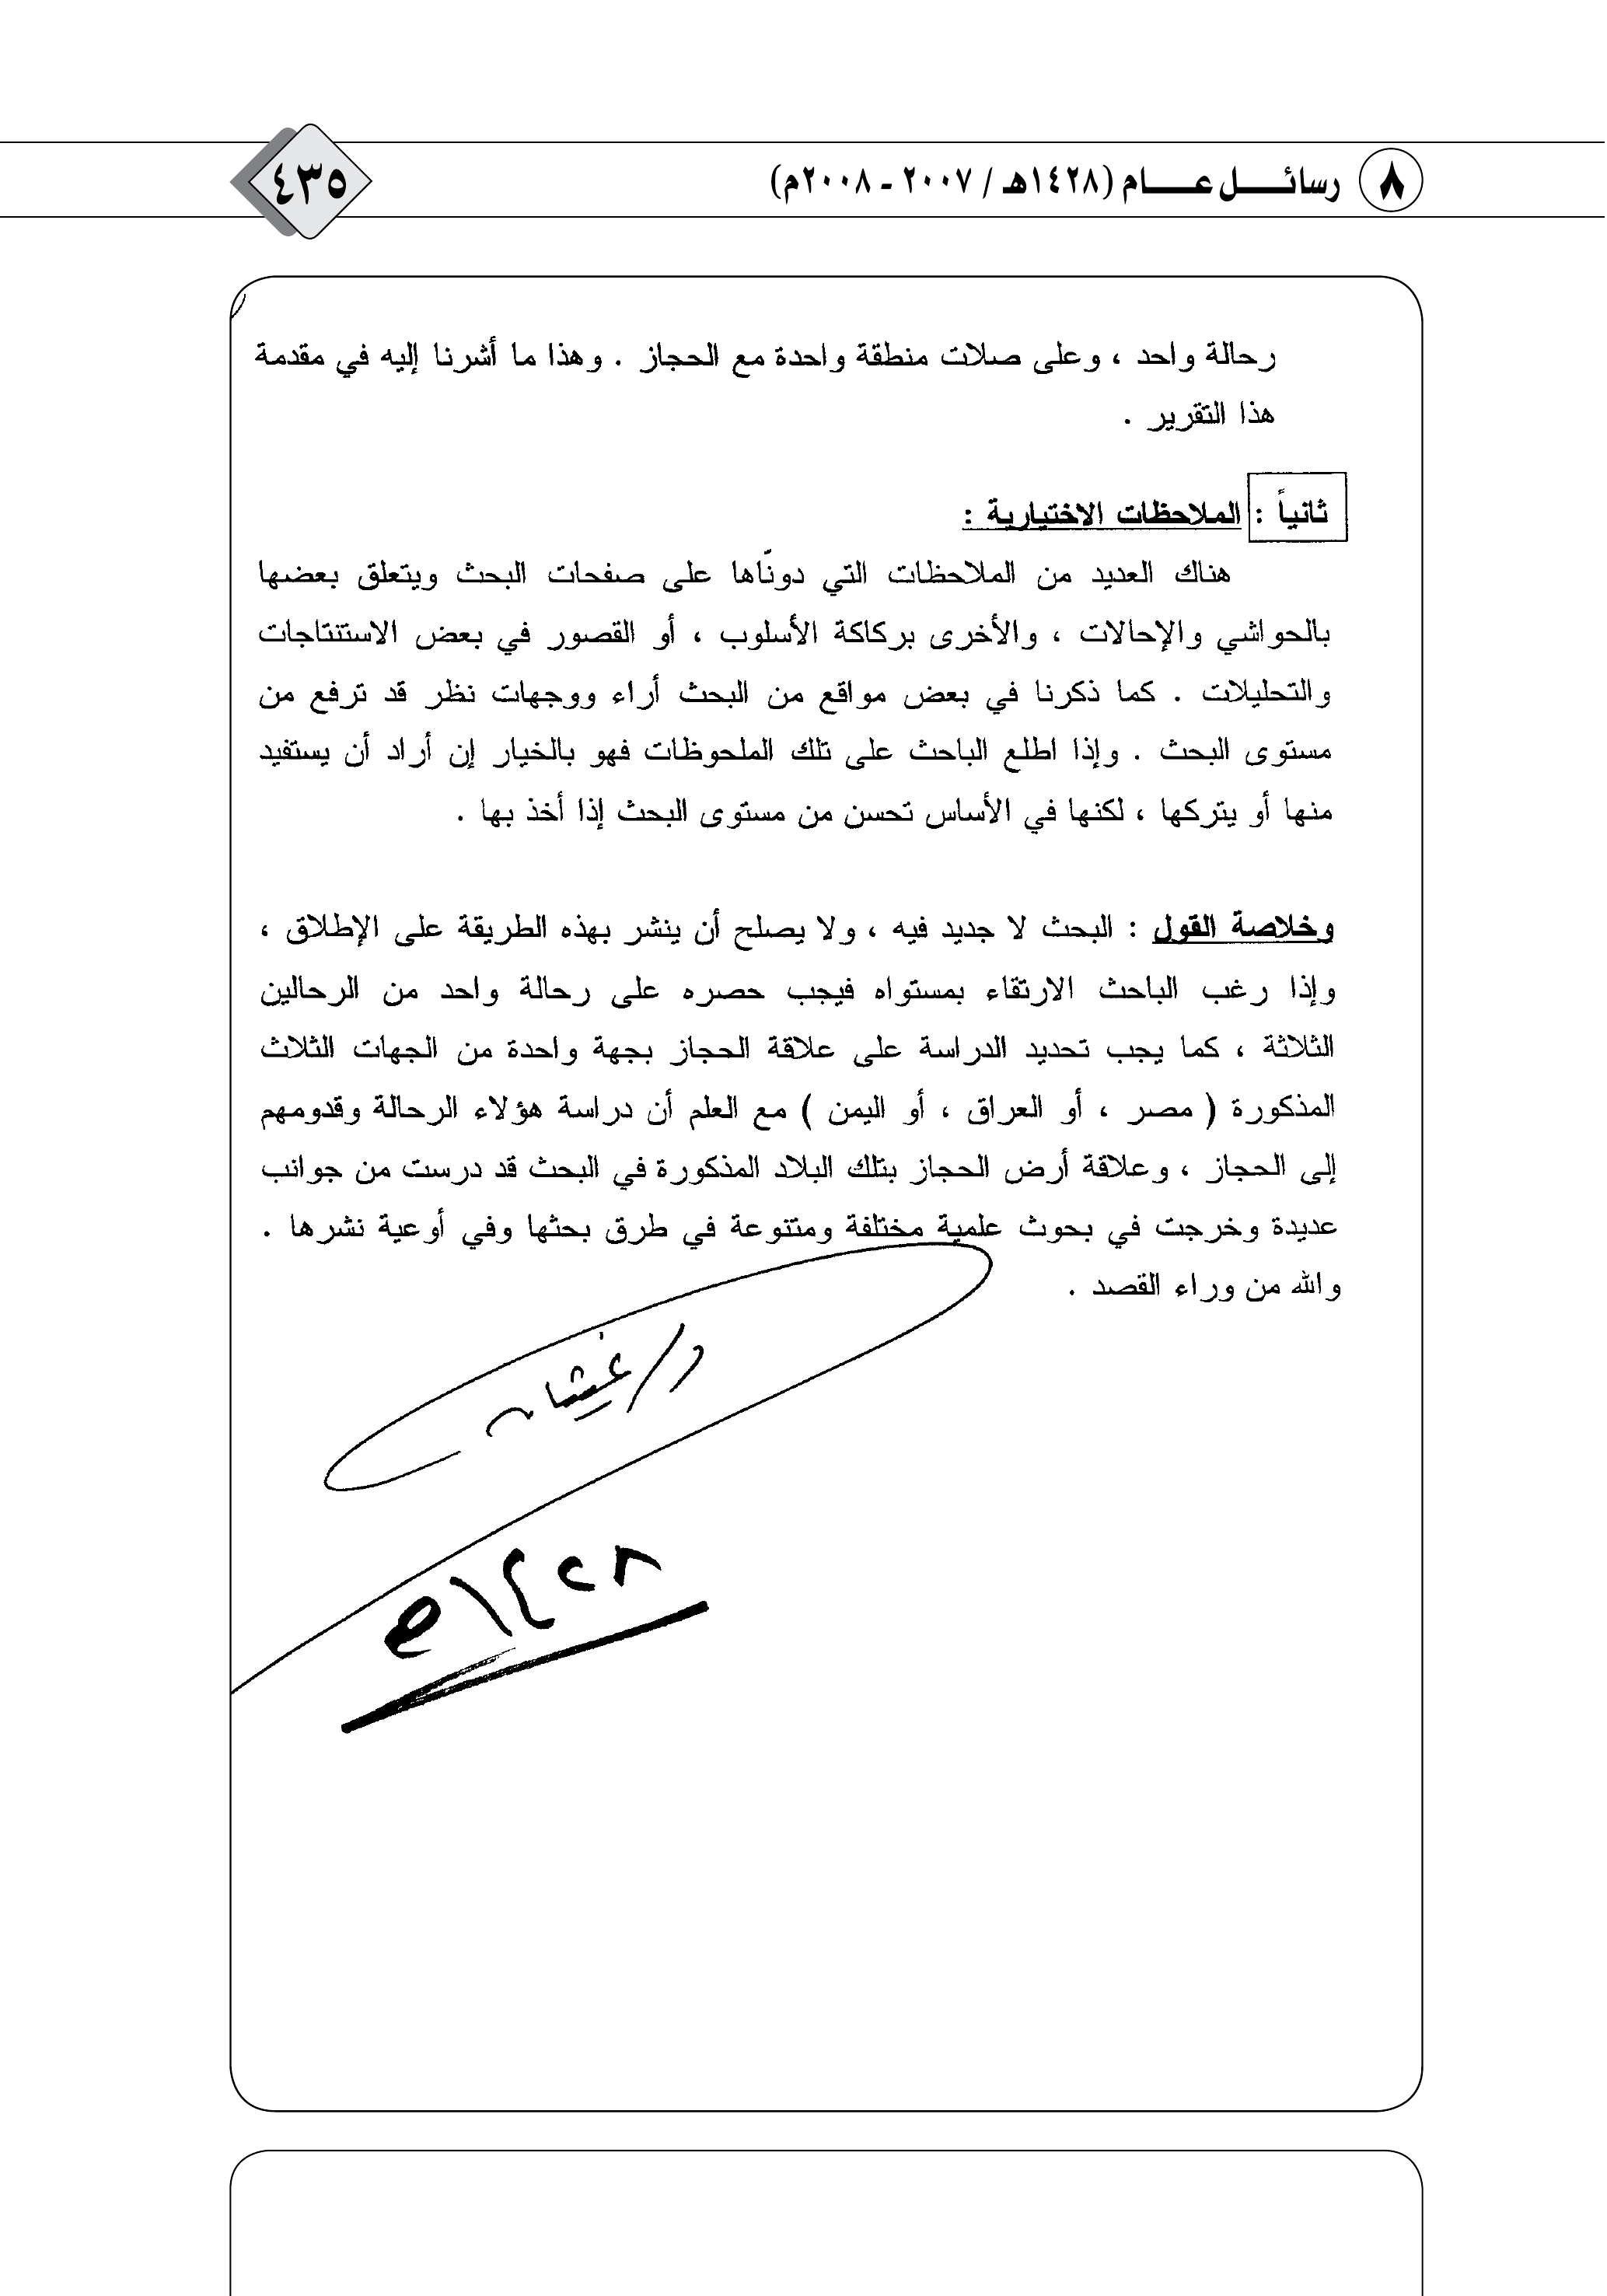 ٨ رسائل عام (١٤٢٨هـ / ٢٠٠٧ - ٢٠٠٨م) ٤٣٥
رحالة واحد ، وعلى صلات منطقة واحدة مع الحجاز . وهذا ما أشرنا إليه في مقدمة
هذا التقرير .
ثانياً : الملاحظات الاختيارية :
هناك العديد من الملاحظات التي دونّاها على صفحات البحث ويتعلق بعضها
بالحواشي والإحالات ، والأخرى بركاكة الأسلوب ، أو القصور في بعض الاستنتاجات
والتحليلات . كما ذكرنا في بعض مواقع من البحث أراء ووجهات نظر قد ترفع من
مستوى البحث . وإذا اطلع الباحث على تلك الملحوظات فهو بالخيار إن أراد أن يستفيد
منها أو يتركها ، لكنها في الأساس تحسن من مستوى البحث إذا أخذ بها .
وخلاصة القول : البحث لا جديد فيه ، ولا يصلح أن ينشر بهذه الطريقة على الإطلاق ،
وإذا رغب الباحث الارتقاء بمستواه فيجب حصره على رحالة واحد من الرحالين
الثلاثة ، كما يجب تحديد الدراسة على علاقة الحجاز بجهة واحدة من الجهات الثلاث
المذكورة ( مصر ، أو العراق ، أو اليمن ) مع العلم أن دراسة هؤلاء الرحالة وقدومهم
إلى الحجاز ، وعلاقة أرض الحجاز بتلك البلاد المذكورة في البحث قد درست من جوانب
عديدة وخرجت في بحوث علمية مختلفة ومتنوعة في طرق بحثها وفي أوعية نشرها .
والله من وراء القصد .
د/غيثان
١٤٢٨هـ